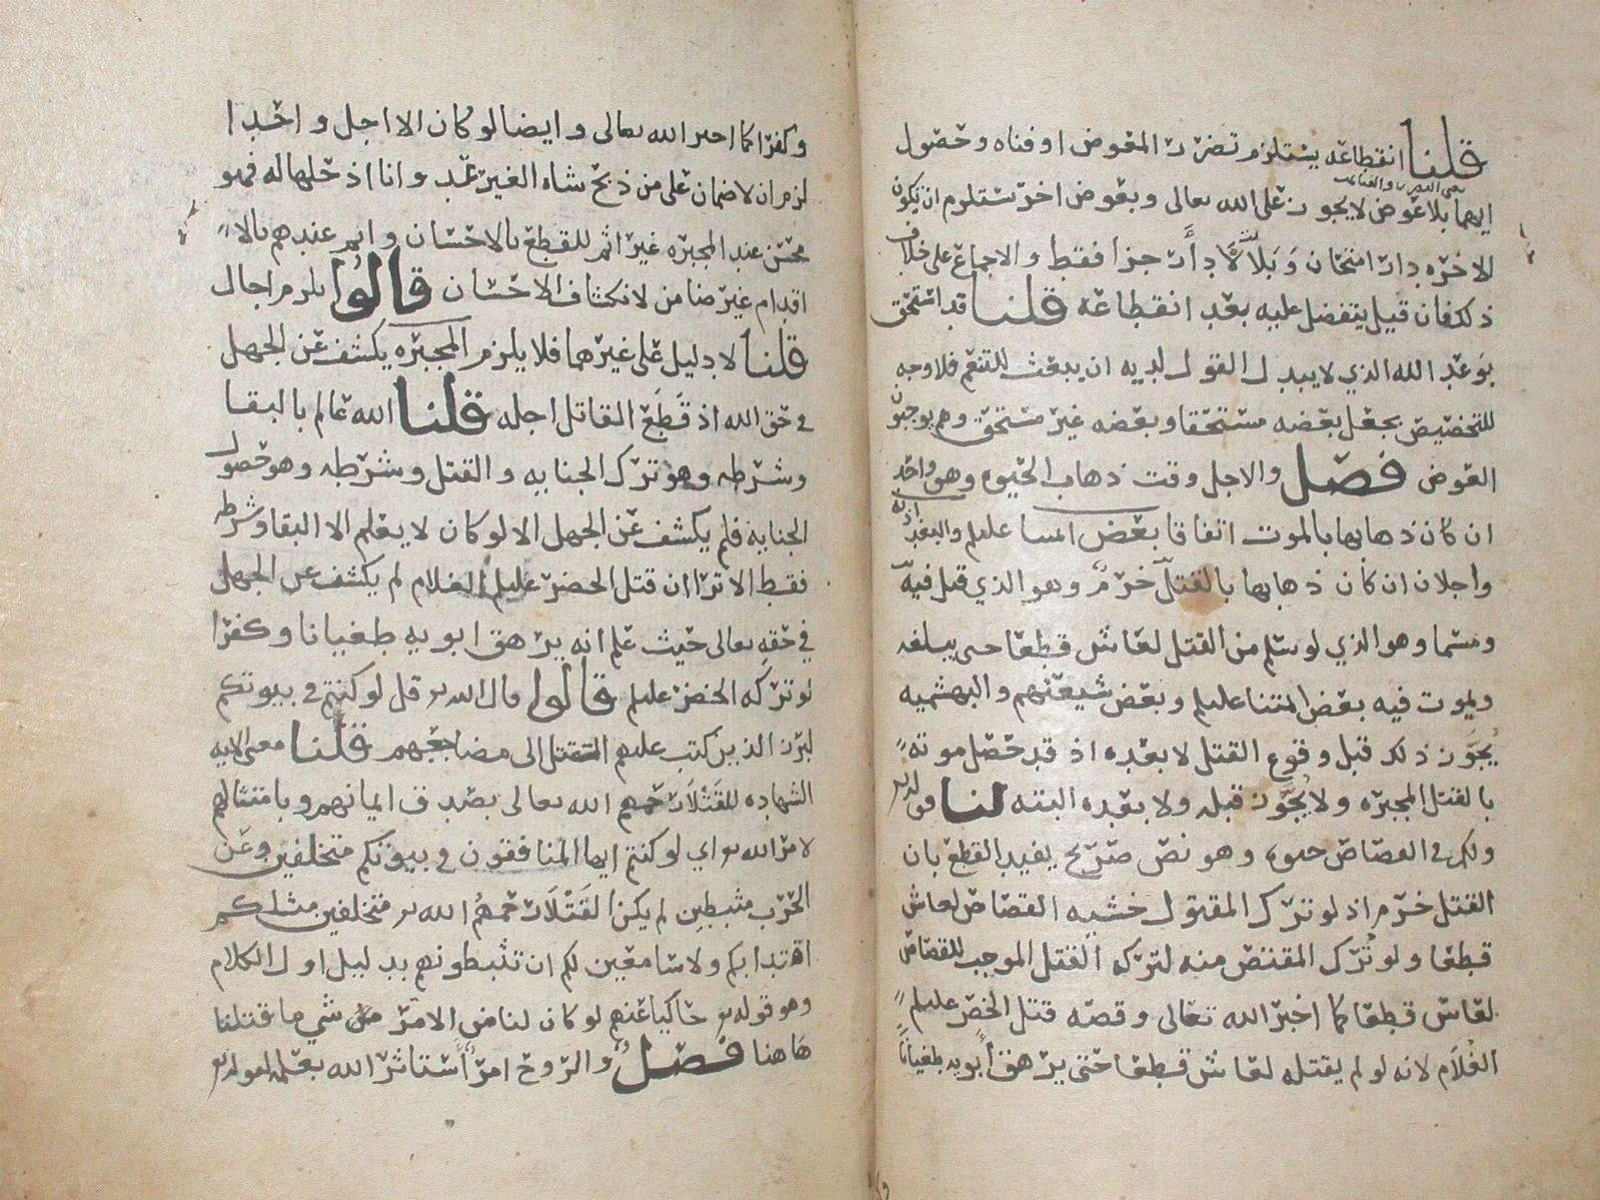 قلنا انقطاعه يستلزم تضرر المعوض او فناه وحصول
بعني الضرر والفنا
ايهما بلا عوض لا يجوز على الله تعالى وبعوض اخر تستلزم ان تكون
الاخره دار امتحان وبلا لا دار جزا فقط والاجماع على خلاف
ذلك فان قيل يتفضل عليه بعد انقطاعه قلنا قد استحق
بوعد الله الذي لا يبدل القول لديه ان يبعث للتنعم فلا وجه
للتخصيص بجعل بعضه مستحقا وبعضه غير مستحق وهم يوجبون
العوض فصل والاجل وقت ذهاب الحيوه وهو واحد
ان كان ذهابها بالموت اتفاقا بعض ائمتنا عليلم والبغدادية
واجلان ان كان ذهابها بالقتل خرم وهو الذي قتل فيه
ومسما وهو الذي لو سلم من القتل لعاش قطعا حتى يبلغه
ويموت فيه بعض ائمتنا عليلم وبعض شيعتهم والبهشميه
يجوز ذلك قبل وقوع القتل لا بعده اذ قد حصل موته
بالقتل المجبره ولا يجوز قبله ولا بعده البته لنا قوله تع
ولكم في القصاص حيوه وهو نص صريح يفيد القطع بان
القتل خرم اذ لو ترك المقتول خشيه القصاص لعاش
قطعا ولو ترك المقتص منه لتركه القتل الموجب للقصاص
لعاش قطعا كما اخبر الله تعالى وقصه قتل الخضر عليلم
الغلام لانه لو لم يقتله لعاش قطعا حتى يرهق ابويه طغيانا
وكفرا كما اخبر الله تعالى وايضا لو كان الا اجل واحدا
لزم ان لا ضمان على من ذبح شاه الغير عمدا وانا اذ حللها له فهو
محسن عند المجبره غير اثم للقطع بالاحسان واثم عندهم بالا
اقدام غير ضامن لانكشاف الاحسان قالوا يلزم اجال
قلنا لا دليل على غيرهما فلا يلزم المجبره يكشف عن الجهل
في حق الله اذ قطع القاتل اجله قلنا الله عالم بالبقا
وشرطه وهو ترك الجنايه والقتل وشرطه وهو حصول
الجنايه فلم يكشف عن الجهل الا لو كان لا يعلم الا البقا وشرطه
فقط الا ترا ان قتل الخضر عليلم الغلام لم يكشف عن الجهل
في حقه تعالى حيث علم انه يرهق ابويه طغيانا وكفرا
لو تركه الخضر عليلم قالوا قال الله تع قل لو كنتم في بيوتكم
لبرز الذين كتب عليهم القتل الى مضاجعهم قلنا معنى الايه
الشهاده للقتلا رحمهم الله تعالى بصدق ايمانهم وبامتثالهم
لامر الله تع اي لو كنتم ايها المنافقون في بيوتكم متخلفين وعن
الحرب مثبطين لم يكن القتلا رحمهم الله تع متخلفين مثلكم
اقتدا بكم ولا سامعين لكم ان تثبطونهم بدليل اول الكلام
وهو قوله تع حاكيا عنهم لو كان لنا من الامر من شي ما قتلنا
هاهنا فصل والروح امر استاثر الله بعلمه لقوله تع